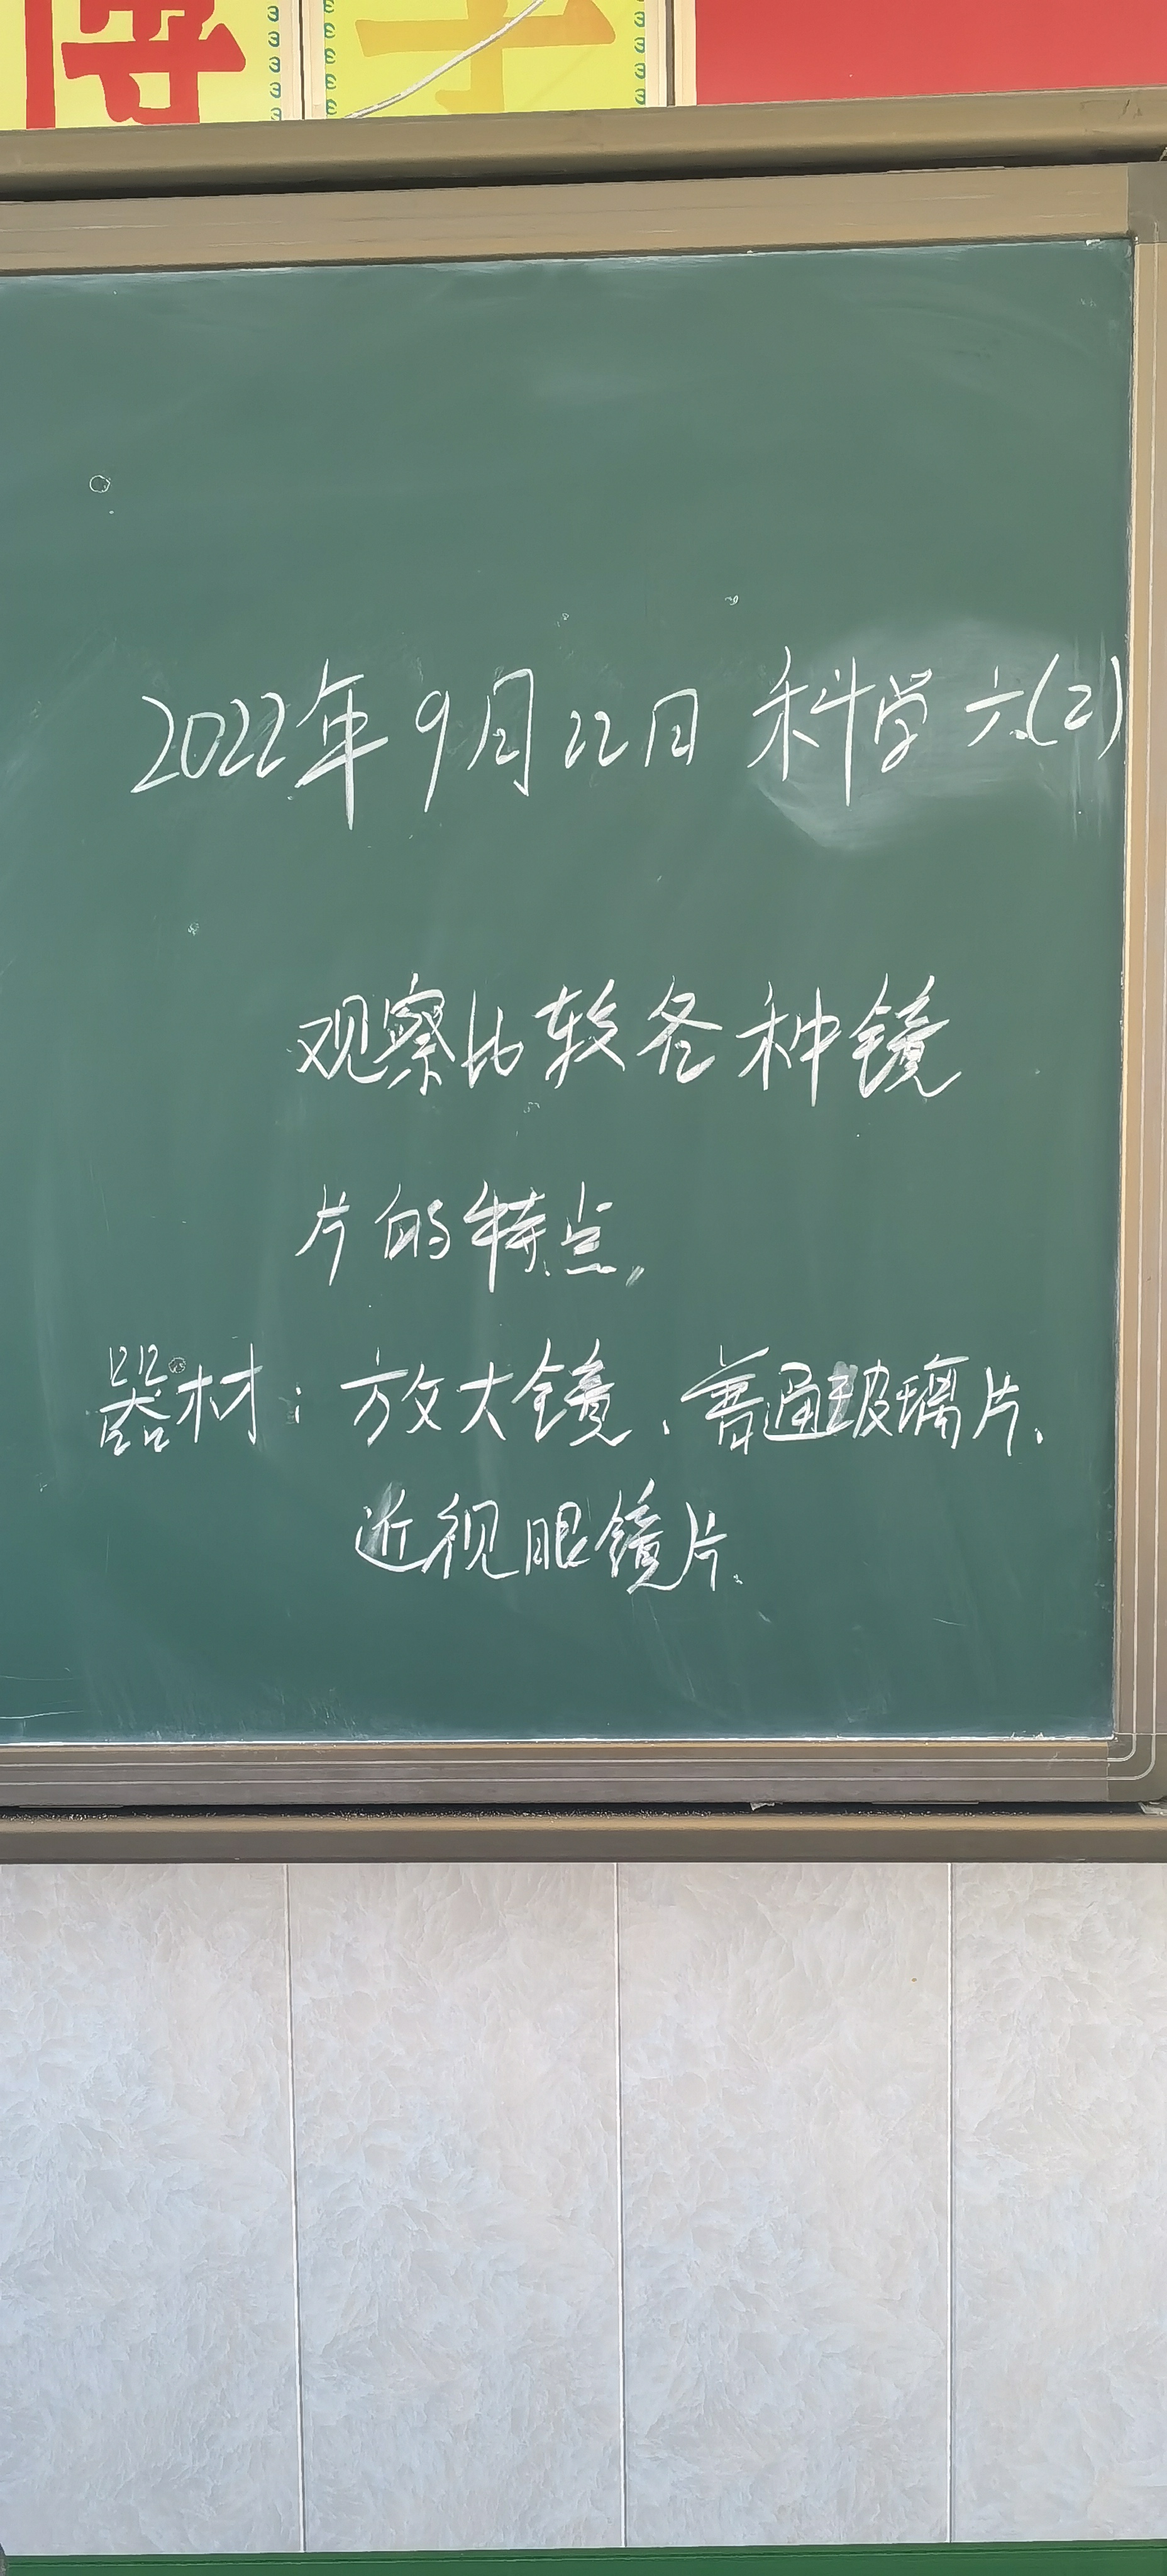 博学
2022年9月22日 科学 六(2)
观察比较各种镜
片的特点,
器材:放大镜、普通玻璃片、
近视眼镜片.